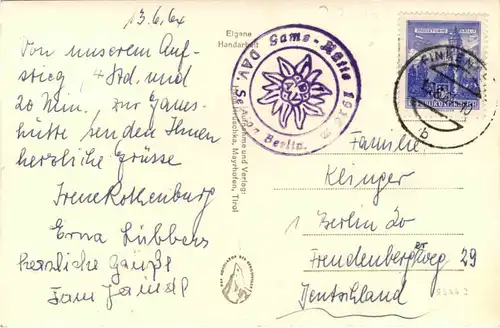 13.6.64
Von unserem Auf-
stieg, 4 Std. und
20 Min. zur Gams-
hütte, senden Ihnen
herzliche Grüsse
Irene Rothenburg
Erna Lübbers
herzliche Grüße
Eigene
Handarbeit
Gams-Hütte 1916 m
DAV. Berlin.
Mayrhofen, Tirol
REPUBLIK ÖSTERREICH
FINKEN
b
Familie
Klinger
1 Berlin 20
Freudenberger Weg 29
Deutschland